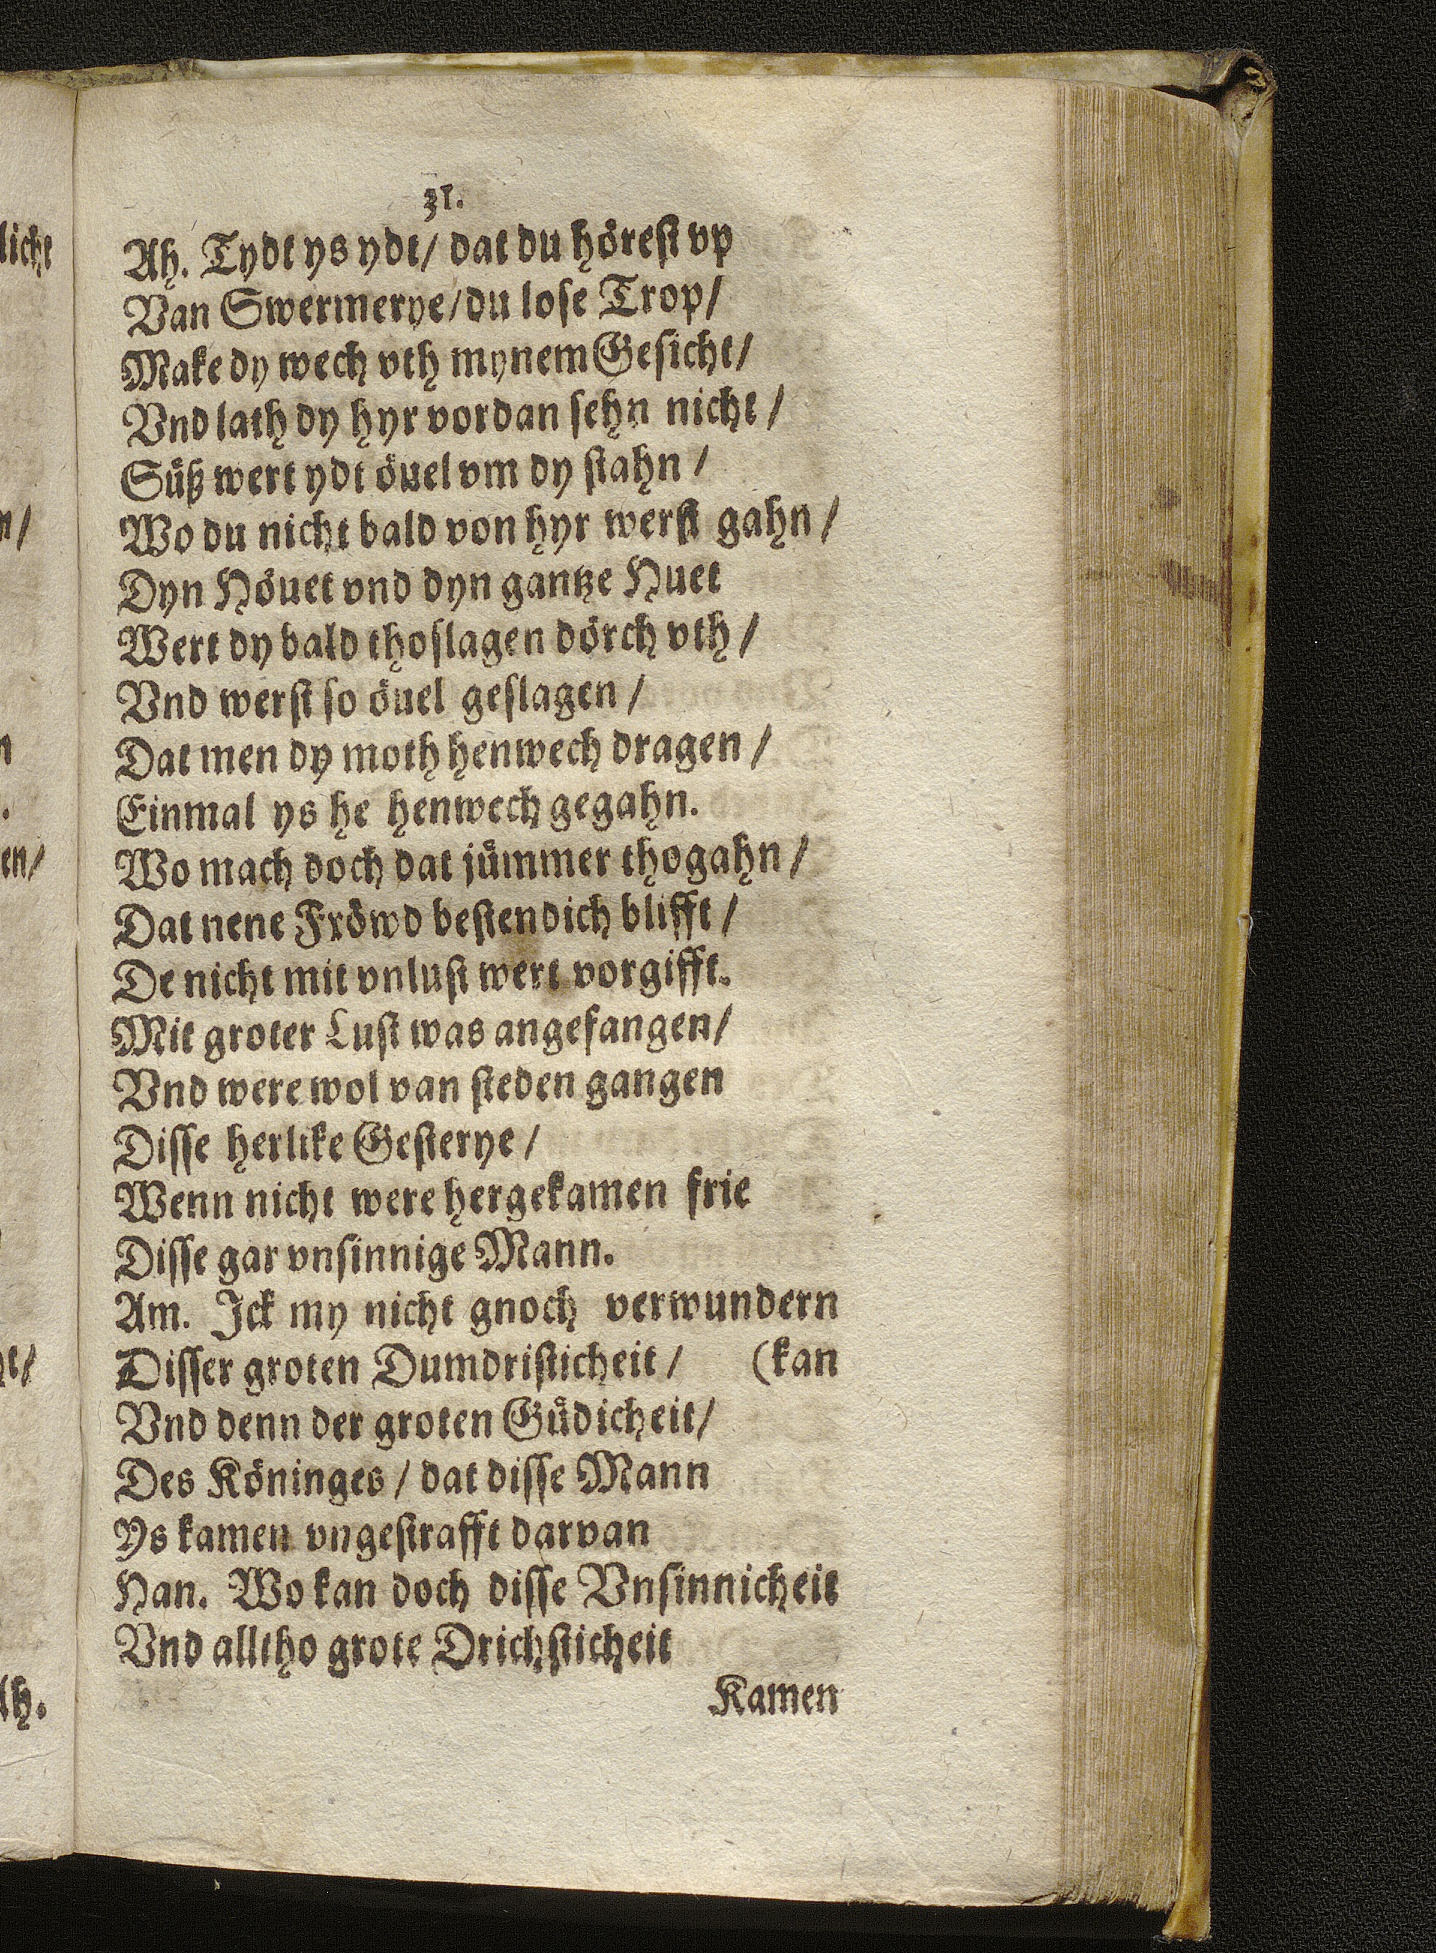 31.
Ah. Tydt ys ydt/ dat du hörest vp
Van Swermerye/du lose Trop/
Make dy wech vth mynem Gesicht/
Vnd lath dy hyr vordan sehn nicht/
Süß wert ydt öuel vm dy stahn/
Wo du nicht bald von hyr werst gahn/
Dyn Höuet vnd dyn gantze Huet
Wert dy bald thoslagen dörch vth/
Vnd werst so öuel geslagen/
Dat men dy moth henwech dragen/
Einmal ys he henwech gegahn.
Wo mach doch dat jümmer thogahn/
Dat nene Fröwd bestendich blifft/
De nicht mit vnlust wert vorgifft.
Mit groter Lust was angefangen/
Vnd were wol van steden gangen
Disse herlike Gesterye/
Wenn nicht were hergekamen frie
Disse gar vnsinnige Mann.
Am. Ick my nicht gnoch verwundern
Disser groten Dumdristicheit/ (kan
Vnd denn der groten Güdicheit/
Des Köninges/ dat disse Mann
Ys kamen vngestrafft darvan
Han. Wo kan doch disse Vnsinnicheit
Vnd alltho grote Drichsticheit
Kamen